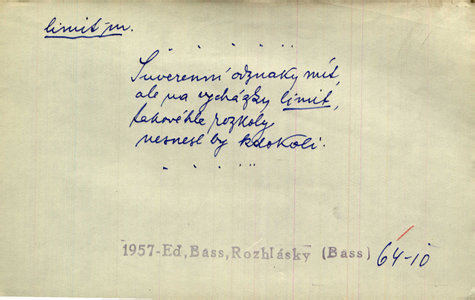 limit-m.
. . . . ..
Suverenní odznaky mít,
ale na vycházky limit,
takovéhle rozkoly
nesnesl by kdokoli.
. . . ...
1957-Ed,Bass,Rozhlásky (Bass) 64-10